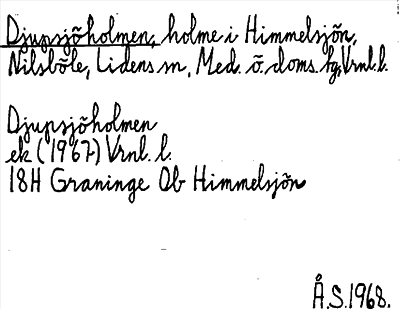 Djupsjöholmen, holme i Himmelsjön,
Nilsböle, Lidens sn, Med. ö. doms. tg, Vrnl. l.
Djupsjöholmen
ek (1967) Vrnl. l.
18H Graninge Ob Himmelsjön
Å.S. 1968.